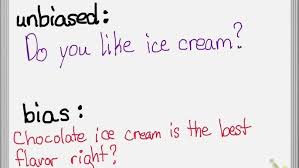 unbiased:
Do you like ice cream?
bias:
Chocolate ice cream is the best
flavor right?